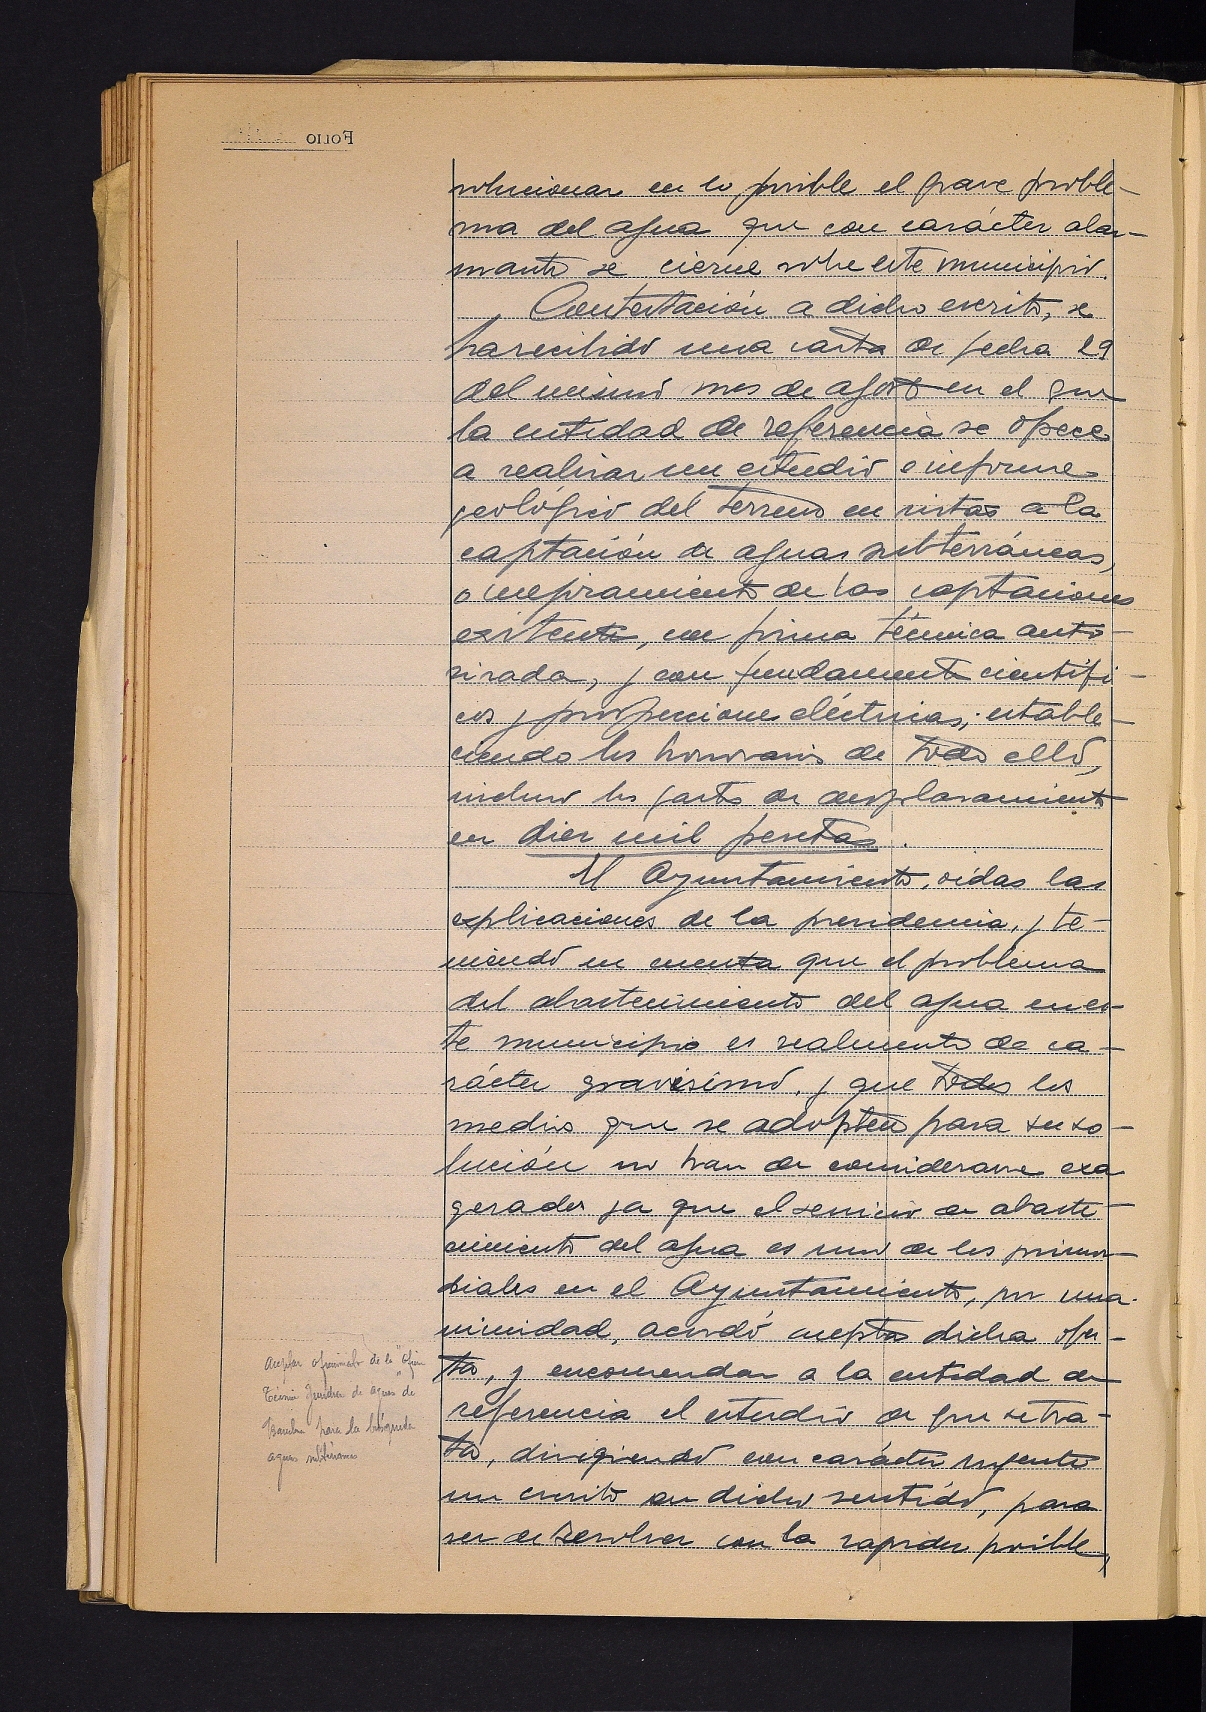 FOLIO
solucionar en lo posible el grave proble-
ma del agua que con carácter alar-
mante se cierne sobre este municipio.
Contestación a dicho escrito, se
ha recibido una carta de fecha 29
del mismo mes de agosto en el que
la entidad de referencia se ofrece
a realizar un estudio e informe
geológico del terreno en vistas a la
captación de aguas subterráneas,
o mejoramiento de las captaciones
existentes, con firma técnica auto-
rizada, y con fundamentos científi-
cos y prospecciones eléctricas, estable-
ciendo los honorarios de todo ello,
incluso los gastos de desplazamiento
en diez mil pesetas.
El Ayuntamiento, oidas las
explicaciones de la presidencia, y te-
niendo en cuenta que el problema
del abastecimiento del agua en es-
te municipio es realmente de ca-
rácter gravísimo, y que todos los
medios que se adopten para su so-
lución no han de considerarse exa
gerados ya que el servicio de abaste-
cimiento del agua es uno de los primor-
diales en el Ayuntamiento, por una-
nimidad, acordó aceptar dicha ofer-
ta, y encomendar a la entidad de
referencia el estudio de que se tra-
ta, dirigiendo con carácter urgente
un escrito en dicho sentido, para
ser de resolver con la rapidez posible,
Aceptar ofrecimiento de la "Ofici
Técnica de aguas de
para la búsqueda
aguas subterráneas